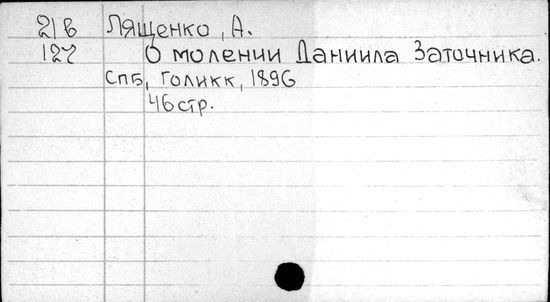 21 в Лященко, А.
127 О молении Даниила Заточника.
СПБ, Голикк, 1896
46 стр.